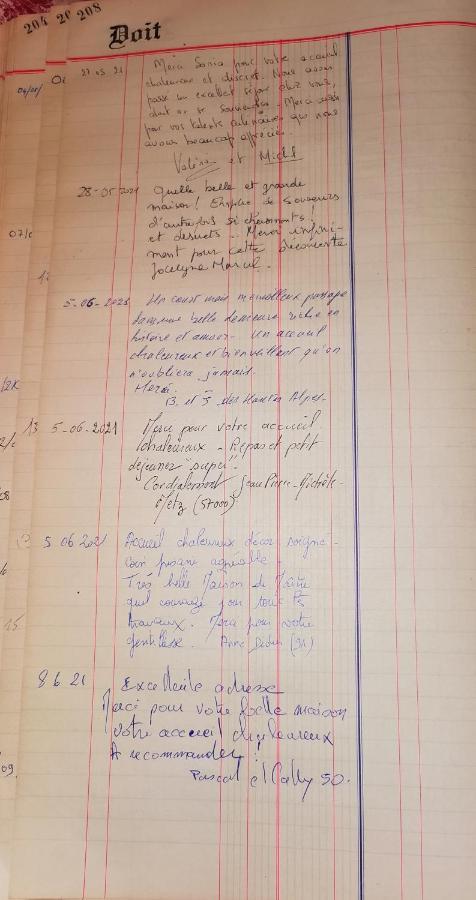 204 20 208
Doit
27.05.21
Merci Sonia pour votre accueil
chaleureux et discret. Nous avons
passé un excellent séjour chez vous,
dont on se souviendra. Merci aussi
pour vos talents culinaires que nous
avons beaucoup appréciés.
et Michel
28-05-2021
Quelle belle et grande
maison! Emplie de souvenirs
d'autrefois si charmants!
et desuets. Merci infini-
ment pour cette découverte
Jocelyne Marcel.
5-06-2021
Un court mais merveilleux passage
dans une belle demeure riche en
histoire et amour. Un accueil
chaleureux et bienveillant qu'on
n'oubliera jamais.
Merci.
B et J des Hautes Alpes.
13 5-06-2021
Merci pour votre accueil
chaleureux - Repas et petit
déjeuner "super".
Cordialement Jean Pierre - Michèle -
Metz (57000)
5 06 2021
Accueil chaleureux décor soigné -
Coin piscine agréable -
Très belle Maison de Maître
quel courage pour tous ts
travaux. Merci pour votre
gentillesse. Anne Didier (91)
15
8 6 21
Excellente adresse
Merci pour votre belle maison
votre accueil chaleureux
A recommander!
Pascal et Cathy 50.
09